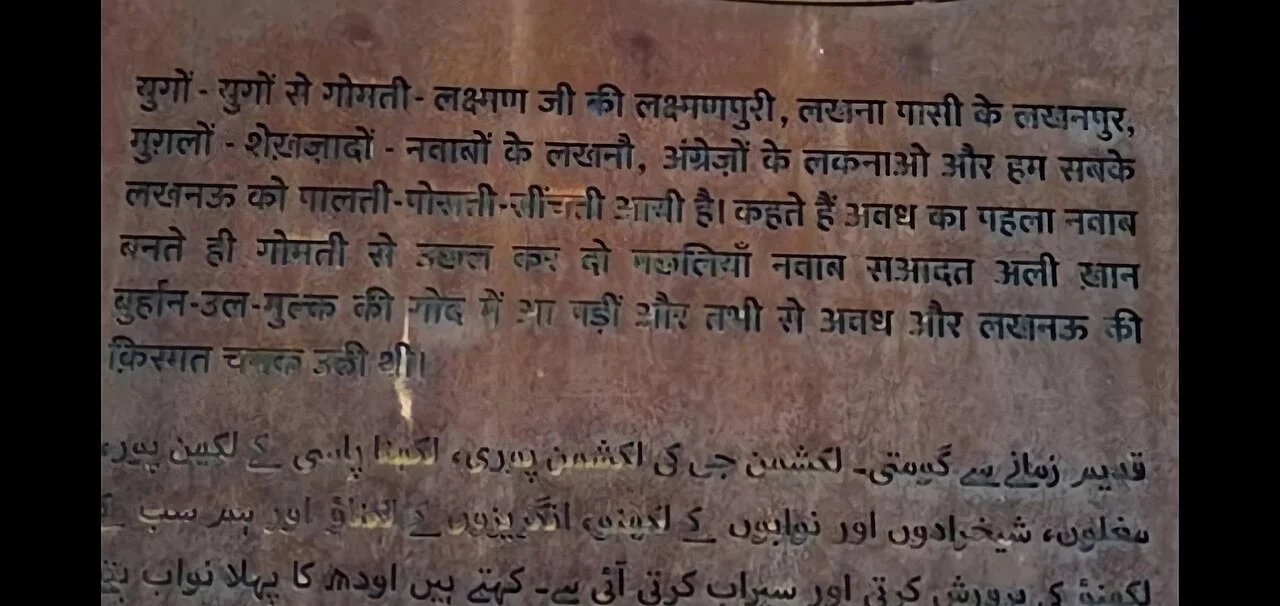 युगों - युगों से गोमती - लक्ष्मण जी की लक्ष्मणपुरी, लखना पासी के लखनपुर,
मुग़लों - शेख़ज़ादों - नवाबों के लखनौ, अंग्रेज़ों के लकनाओ और हम सबके
लखनऊ को पालती-पोसती-सींचती आयी है। कहते हैं अवध का पहला नवाब
बनते ही गोमती से उछल कर दो मछलियाँ नवाब सआदत अली ख़ान
बुर्हान-उल-मुल्क की गोद में आ पड़ीं और तभी से अवध और लखनऊ की
क़िस्मत चमक उठी थी।
قدیم زمانے سے گومتی۔ لکشمن جی کی لکشمن پوری، لکھنا پاسی کے لکھن پور،
مغلوں، شیخزادوں اور نوابوں کے لکھنو، انگریزوں کے لکناؤ اور ہم سب کے
لکھنؤ کی پرورش کرتی اور سیراب کرتی آئی ہے۔ کہتے ہیں اودھ کا پہلا نواب